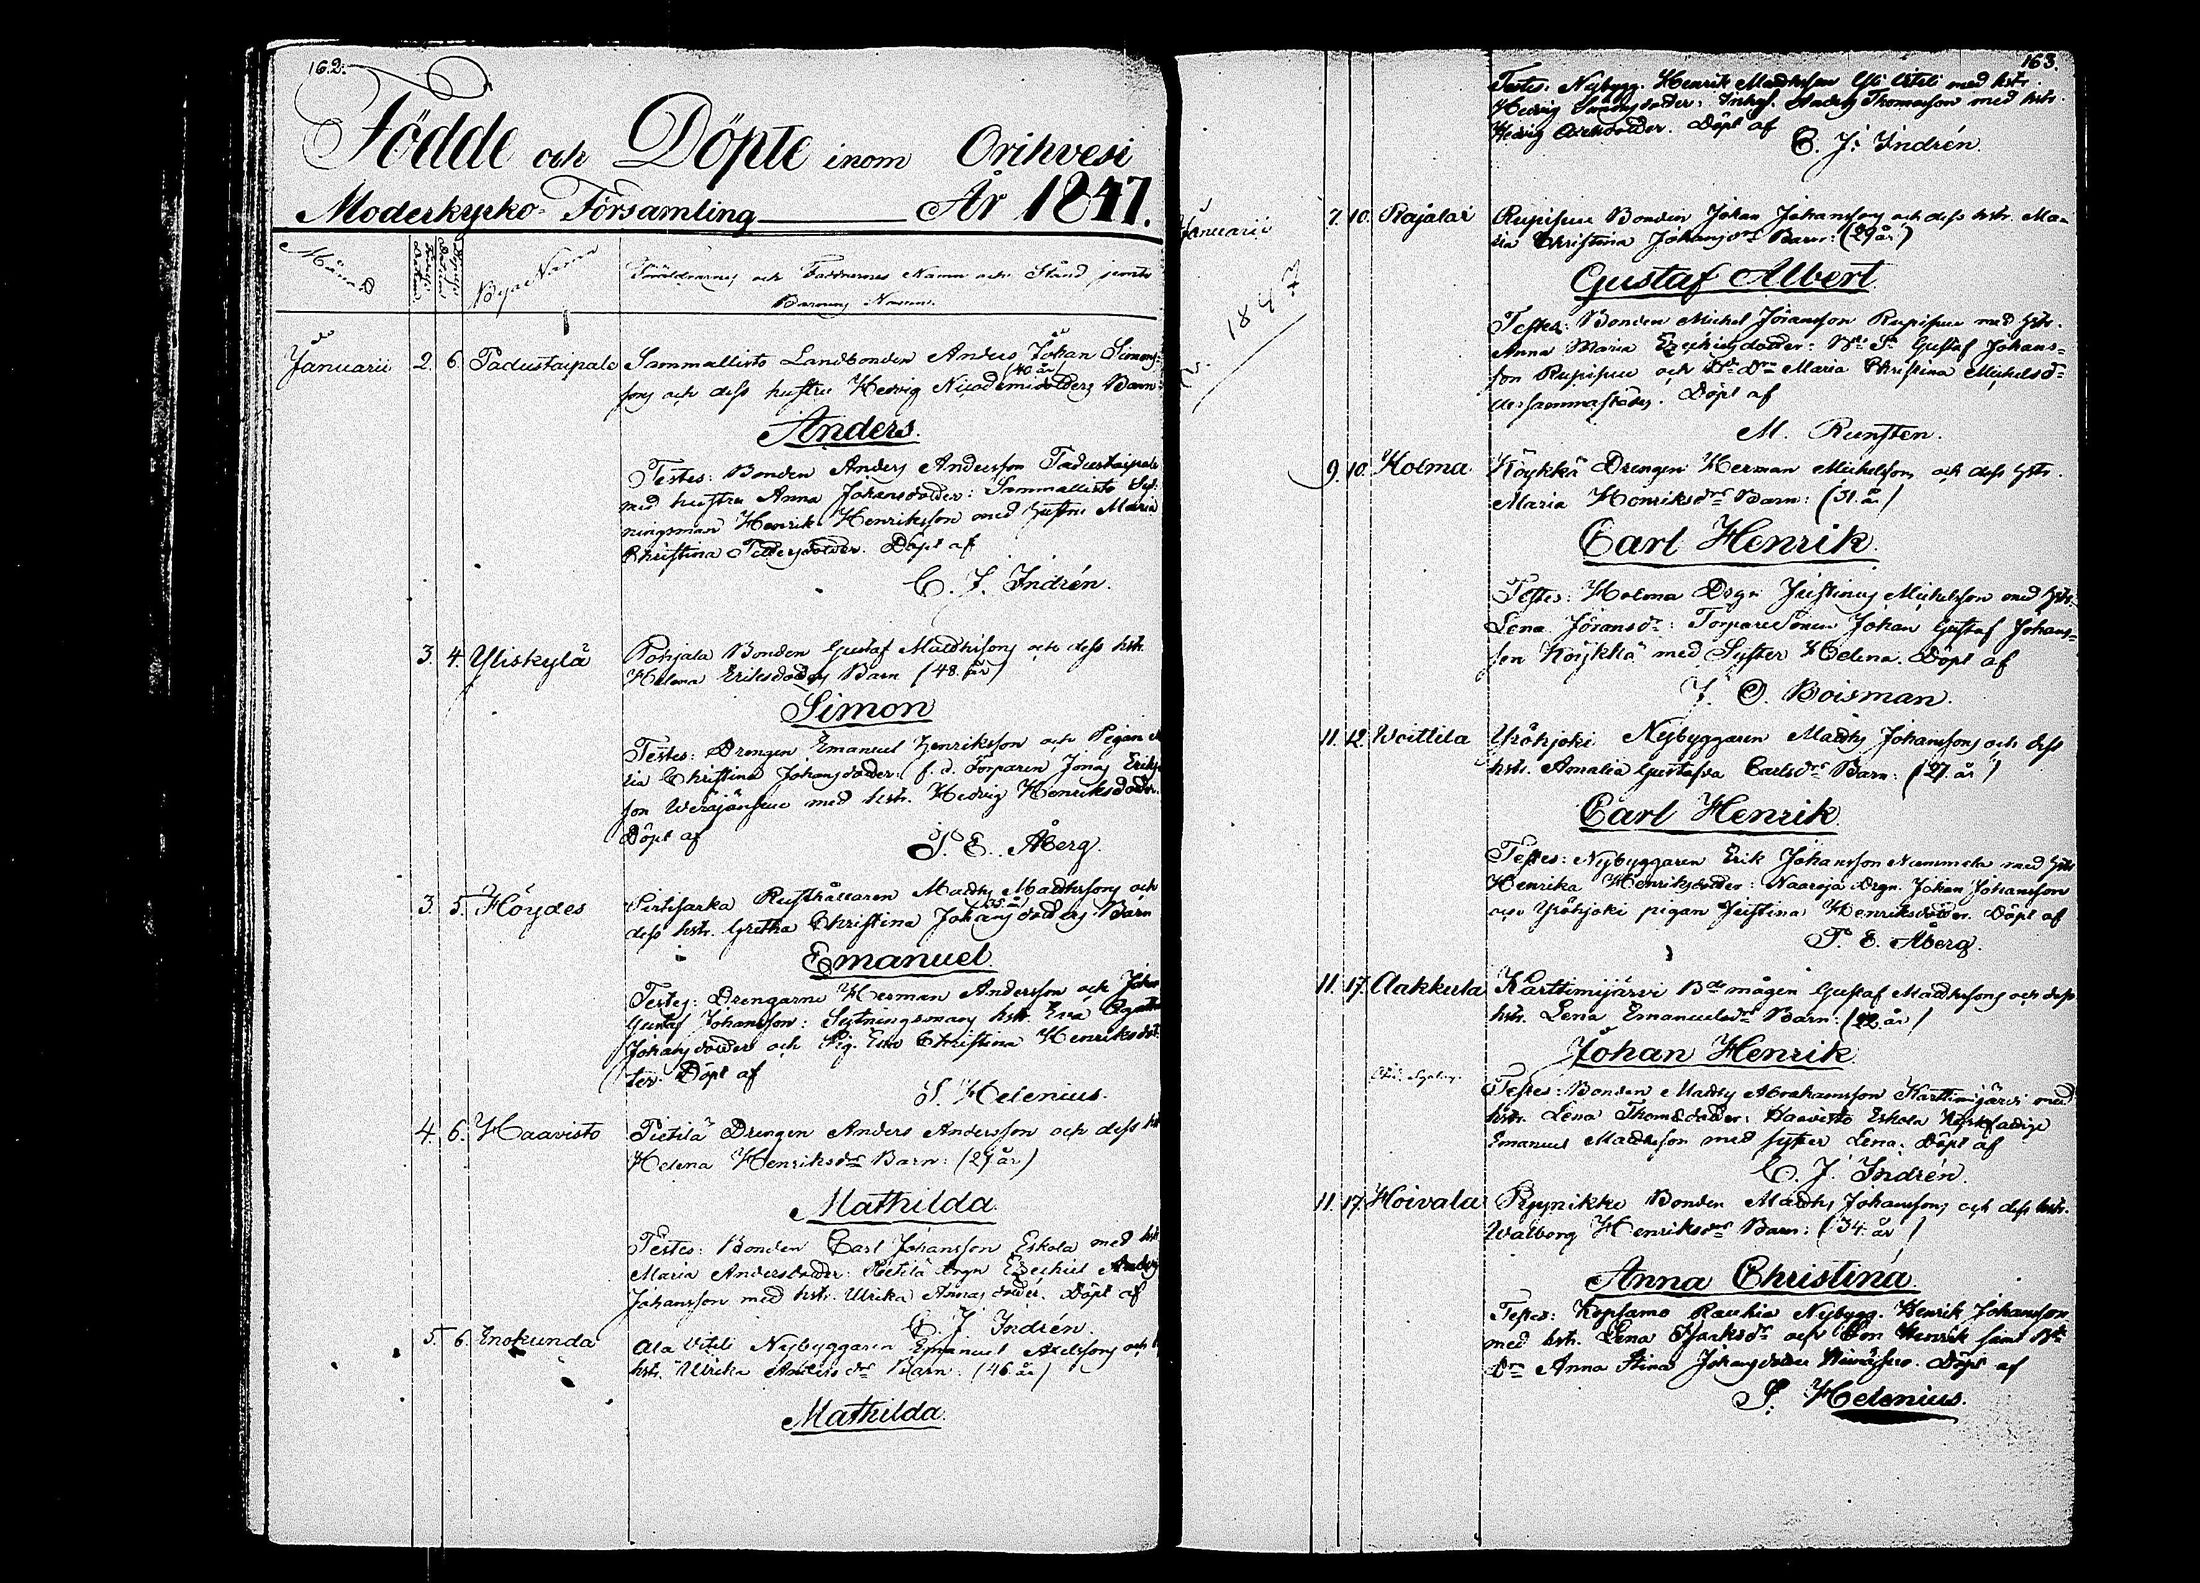 162.
Födde och Döpte inom Orihvesi
Moderkyrko-Församling År 1847.
Månad
Byar Namn
Föräldrarnes och Faddrarnes Namn och Stånd jemte
Barnens Namn.
Januarii 2. 6. Padustaipale Sammallisto Landbonden Anders Johan Simons-
sons och dess hustru Hedvig Nicodemidotters Barn: (40 år)
Anders.
Testes: Bonden Anders Andersson Padustaipale
med hustru Anna Johansdotter: Sammallisto Syt-
ningsman Henrik Henriksson med hustru Maria
Christina Pettersdotter. Döpt af
C. J. Indrén.
3. 4. Yliskylä Pohjala Bonden Gustaf Matthssons och dess hstr.
Helena Eriksdotters Barn (48. år)
Simon
Testes: Drengen Emanuel Henriksson och Pigan
Christina Johansdotter: f. d. Torparen Jonas Eriks-
son Weräjänsuu med hstr. Hedvig Henriksdotter.
Döpt af
P. E. Åberg.
3. 5. Höydes Pirtisarka Rusthållaren Matths Matthssons och
dess hstr. Gretha Christina Johansdotters Barn (35 år)
Emanuel.
Testes: Drengarne Herman Andersson och Johan
Gustaf Johansson: Sytningsmans hstr. Eva Agatha
Johansdotter och Pig. Eva Christina Henriksdot-
ter. Döpt af
S. Helenius.
4. 6. Haavisto Pietilä Drengen Anders Andersson och dess hstr
Helena Henriksdrs Barn: (29 år)
Mathilda.
Testes: Bonden Carl Johansson Eskola med hstr
Maria Andersdotter: Pietilä drgn Ezechiel Anders
Johansson med hstr. Ulrika Annasdotter. Döpt af
C. J. Indrén.
5. 6. Enokunda Ala Vitili Nybyggaren Emanuel Axelssons och
hstr. Ulrika Andersdrs Barn: (46 år)
Mathilda.
163.
Testes: Nybygg. Henrik Matthsson Yli Vitili med hstr.
Hedvig Simonsdotter: Inhys. Anders Thomasson med hstr.
Hedvig Axelsdotter. Döpt af
C. J. Indrén.
Januarii 7. 10. Rajalax Rupisuu Bonden Johan Johanssons och dess hstr. Ma-
ria Christina Johansdrs Barn: (29 år)
1847
Gustaf Albert.
Testes: Bonden Michel Jöransson Rupisuu med hstr.
Anna Maria Ezechielsdotter: Bde Sn Gustaf Johans-
son Rupisuu och Bde Drn Maria Christina Michelsdr
dersammastädes. Döpt af
M. Runsten.
9. 10. Holma Köykkä Drengen Herman Michelssons och dess hstr.
Maria Henriksdrs Barn: (31. år)
Carl Henrik.
Testes: Holma Drgn Justinus Michelsson med hstr.
Lena Jöransdr: Torpare Sonen Johan Gustaf Johans-
son Köykkä med Syster Helena. Döpt af
J. O. Boisman.
11. 12. Woittila Yröhjoki Nybyggaren Matths Johanssons och dess
hstr. Amalia Gustafva Carlsdrs Barn: (27. år)
Carl Henrik.
Testes: Nybyggaren Erik Johansson Nummela med hstr
Henrika Henriksdotter: Naaroja drgn. Johan Johansson
och Yröhjoki pigan Justina Henriksdotter. Döpt af
P. E. Åberg.
11. 17. Aakkula Karttimijärvi Bde mågen Gustaf Matthssons och dess
hstr. Lena Emanuelsdrs Barn: (22 år)
Johan Henrik
Testes: Bonden Matths Abrahamsson Karttimijärvi med
hstr. Lena Thomasdotter: Haavisto Eskola
Emanuel Matthsson med syster Lena. Döpt af
C. J. Indrén.
11. 17. Hoivala Ryynikke Bonden Matths Johanssons och dess hstr.
Walborg Henriksdrs Barn: (34. år)
Anna Christina.
Testes: Kopsamo Raukia Nybygg. Henrik Johansson
med hstr. Lena Isaksdr och Son Henrik samt Bde
Drn Anna Stina Johansdotter. Döpt af
S. Helenius.